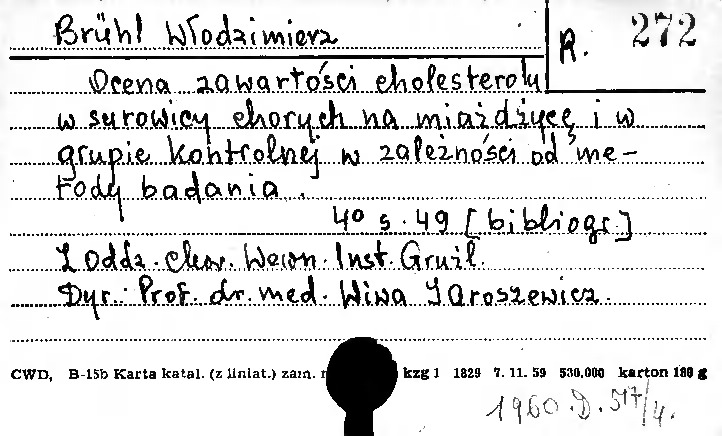 Brühl Włodzimierz
R. 272
Ocena zawartości cholesterolu
w surowicy chorych na miażdżycę i w
grupie kontrolnej w zależności od me-
tody badania.
40 s. 49 [bibliogr.]
Z Oddz. chor. Wewn. Inst. Gruźl.
Dyr.: Prof. dr. med. Wiwa Jaroszewicz.
CWD, B-15b Karta katal. (z liniat.) zam. kzg 1 1829 7. 11. 59 530.000 karton 180 g
1960.D.517/4.